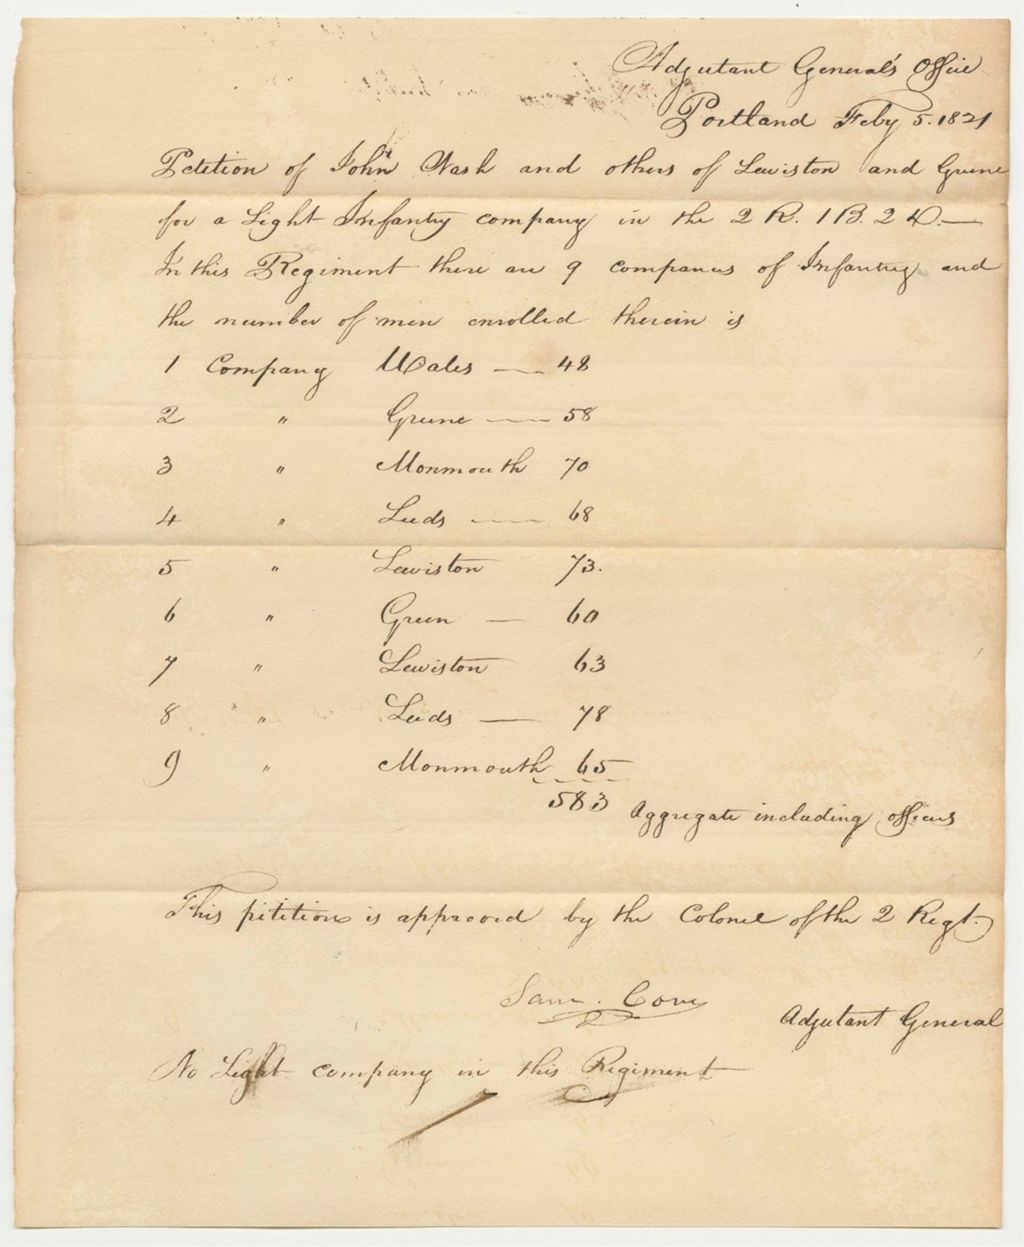 Adjutant General's Office
Portland Feby 5. 1821
Petition of John Nash and others of Lewiston and Greene
for a Light Infantry company in the 2 R. 1 B. 2 D. —
In this Regiment there are 9 companies of Infantry and
the number of men enrolled therein is
1 Company Wales — 48
2 " Greene — 58
3 " Monmouth 70
4 " Leeds — 68
5 " Lewiston 73.
6 " Green — 60
7 " Lewiston 63
8 " Leeds — 78
9 " Monmouth 65
583 Aggregate including officers
This petition is approved by the Colonel of the 2 Regt.
Saml. Cony
Adjutant General
No Light company in this Regiment